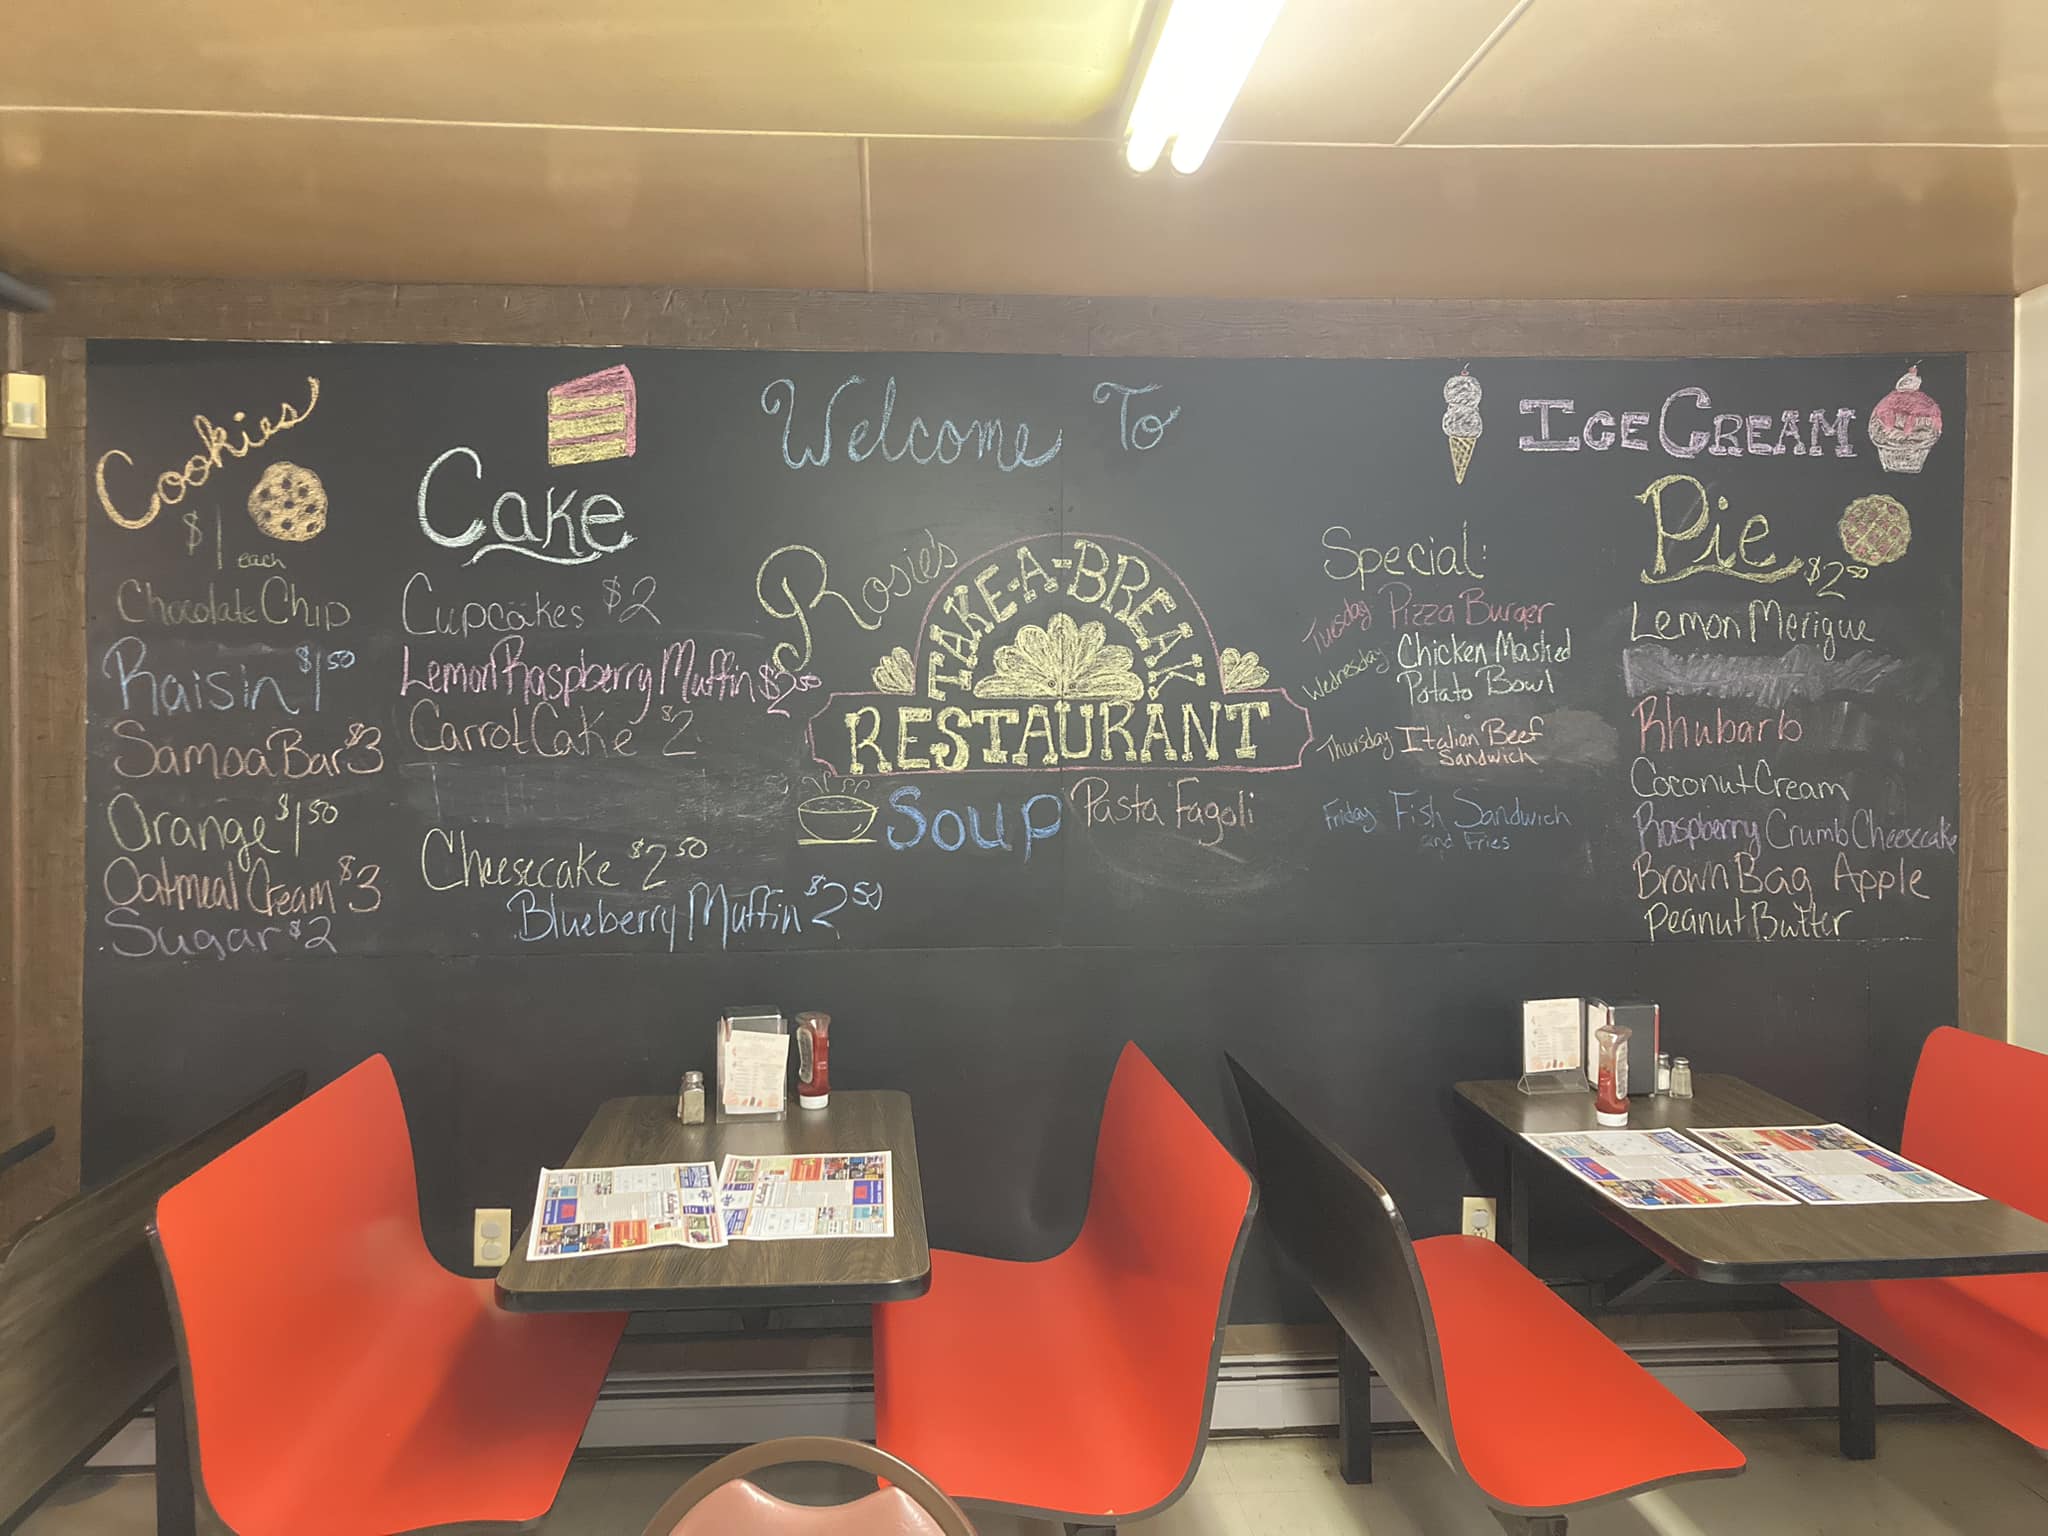 Cookies
$1 each
Chocolate Chip
Raisin $1.50
Samoa Bar $3
Orange $1.50
Oatmeal Cream $3
Sugar $2
Cake
Cupcakes $2
Lemon Raspberry Muffin
Carrot Cake $2
Cheesecake $2.50
Blueberry Muffin $2.50
Welcome To
Rosie's
TAKE-A-BREAK
RESTAURANT
Soup Pasta Fagoli
Special:
Tuesday Pizza Burger
Wednesday Chicken Mashed
Potato Bowl
Thursday Italian Beef
Sandwich
Friday Fish Sandwich
and Fries
ICE CREAM
Pie $2.50
Lemon Merigue
Rhubarb
Coconut Cream
Raspberry Crumb Cheesecake
Brown Bag Apple
Peanut Butter